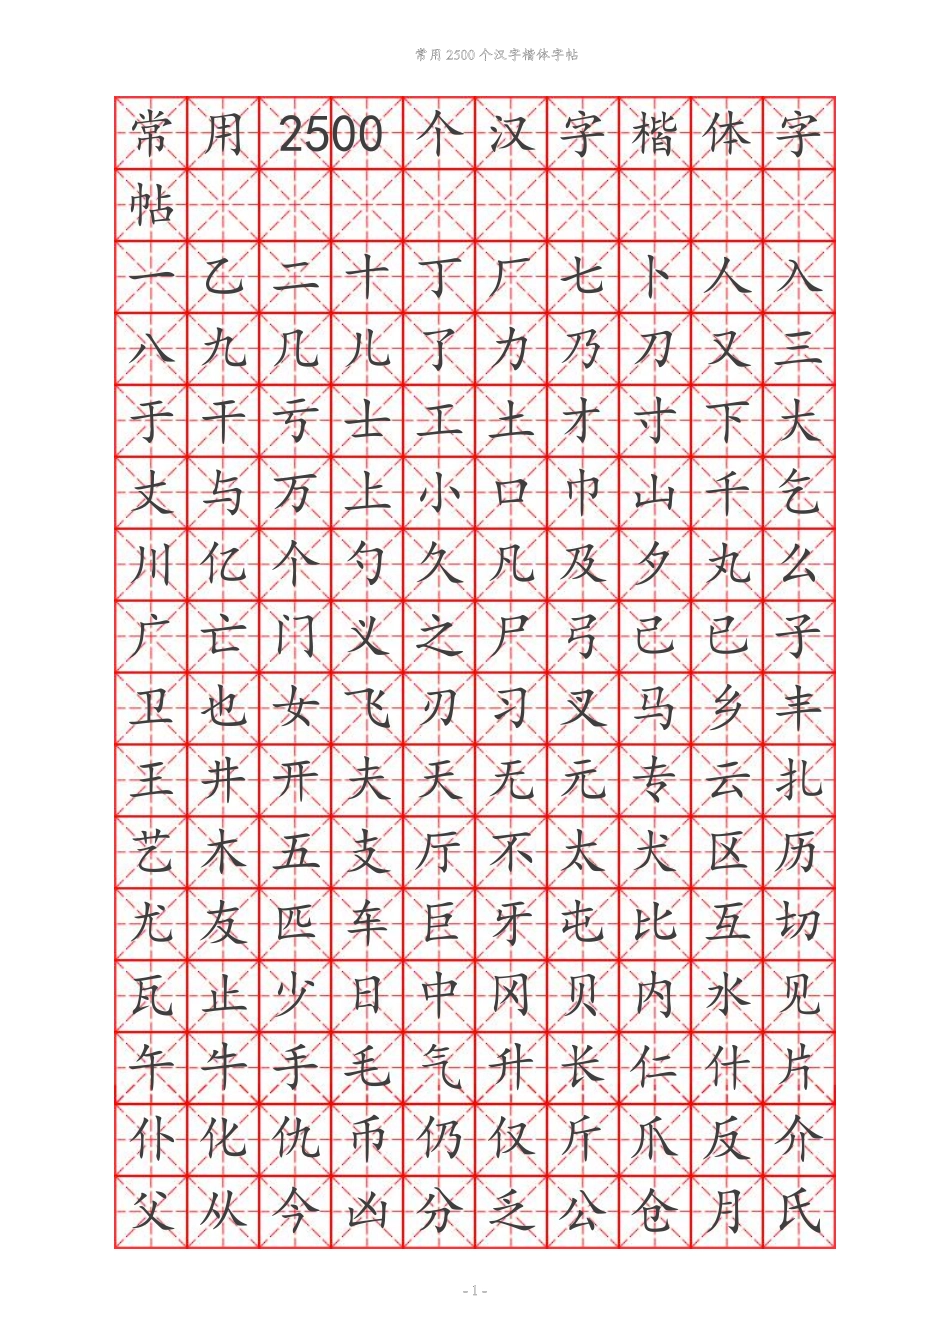 常用 2500 个汉字楷体字帖
常用2500个汉字楷体字
帖
一乙二十丁厂七卜人入
八九几儿了力乃刀又三
于干亏士工土才寸下大
丈与万上小口巾山千乞
川亿个勺久凡及夕丸么
广亡门义之尸弓己已子
卫也女飞刃习叉马乡丰
王井开夫天无元专云扎
艺木五支厅不太犬区历
尤友匹车巨牙屯比互切
瓦止少日中冈贝内水见
午牛手毛气升长仁什片
仆化仇币仍仅斤爪反介
父从今凶分乏公仓月氏
- 1 -